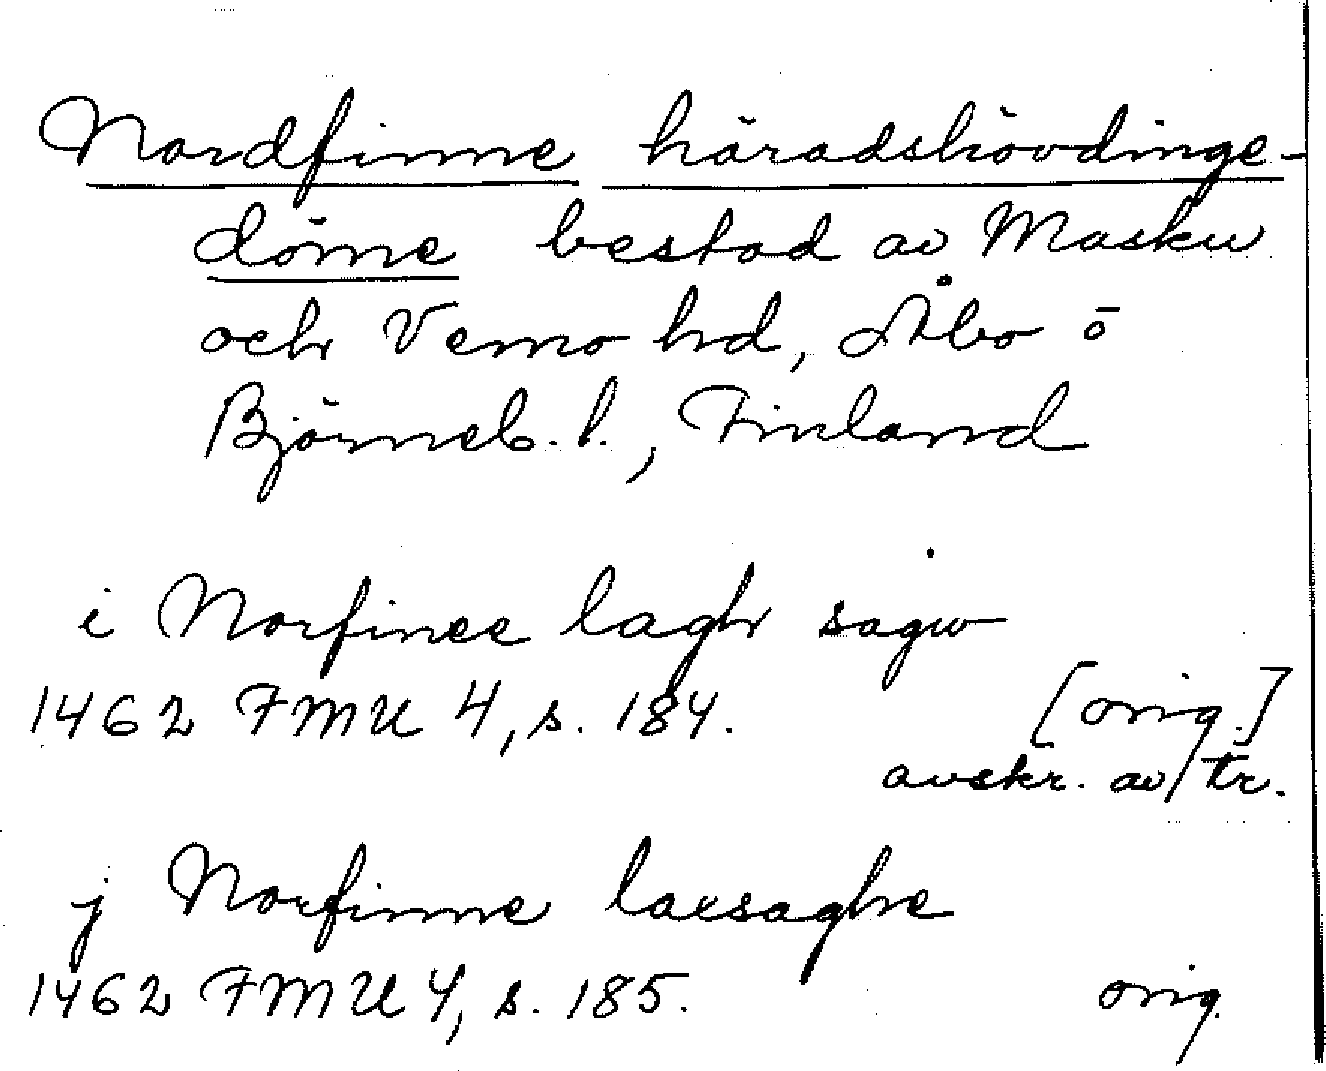 Nordfinne häradshövdinge-
döme bestod av Masku
och Vemo hd, Åbo o
Björneb. l., Finland
i Norfinee lagh sagw
1462 FMU 4, s. 184. [orig.]
avskr. av tr.
j Norfinne laxsaghe
1462 FMU 4, s. 185. orig.